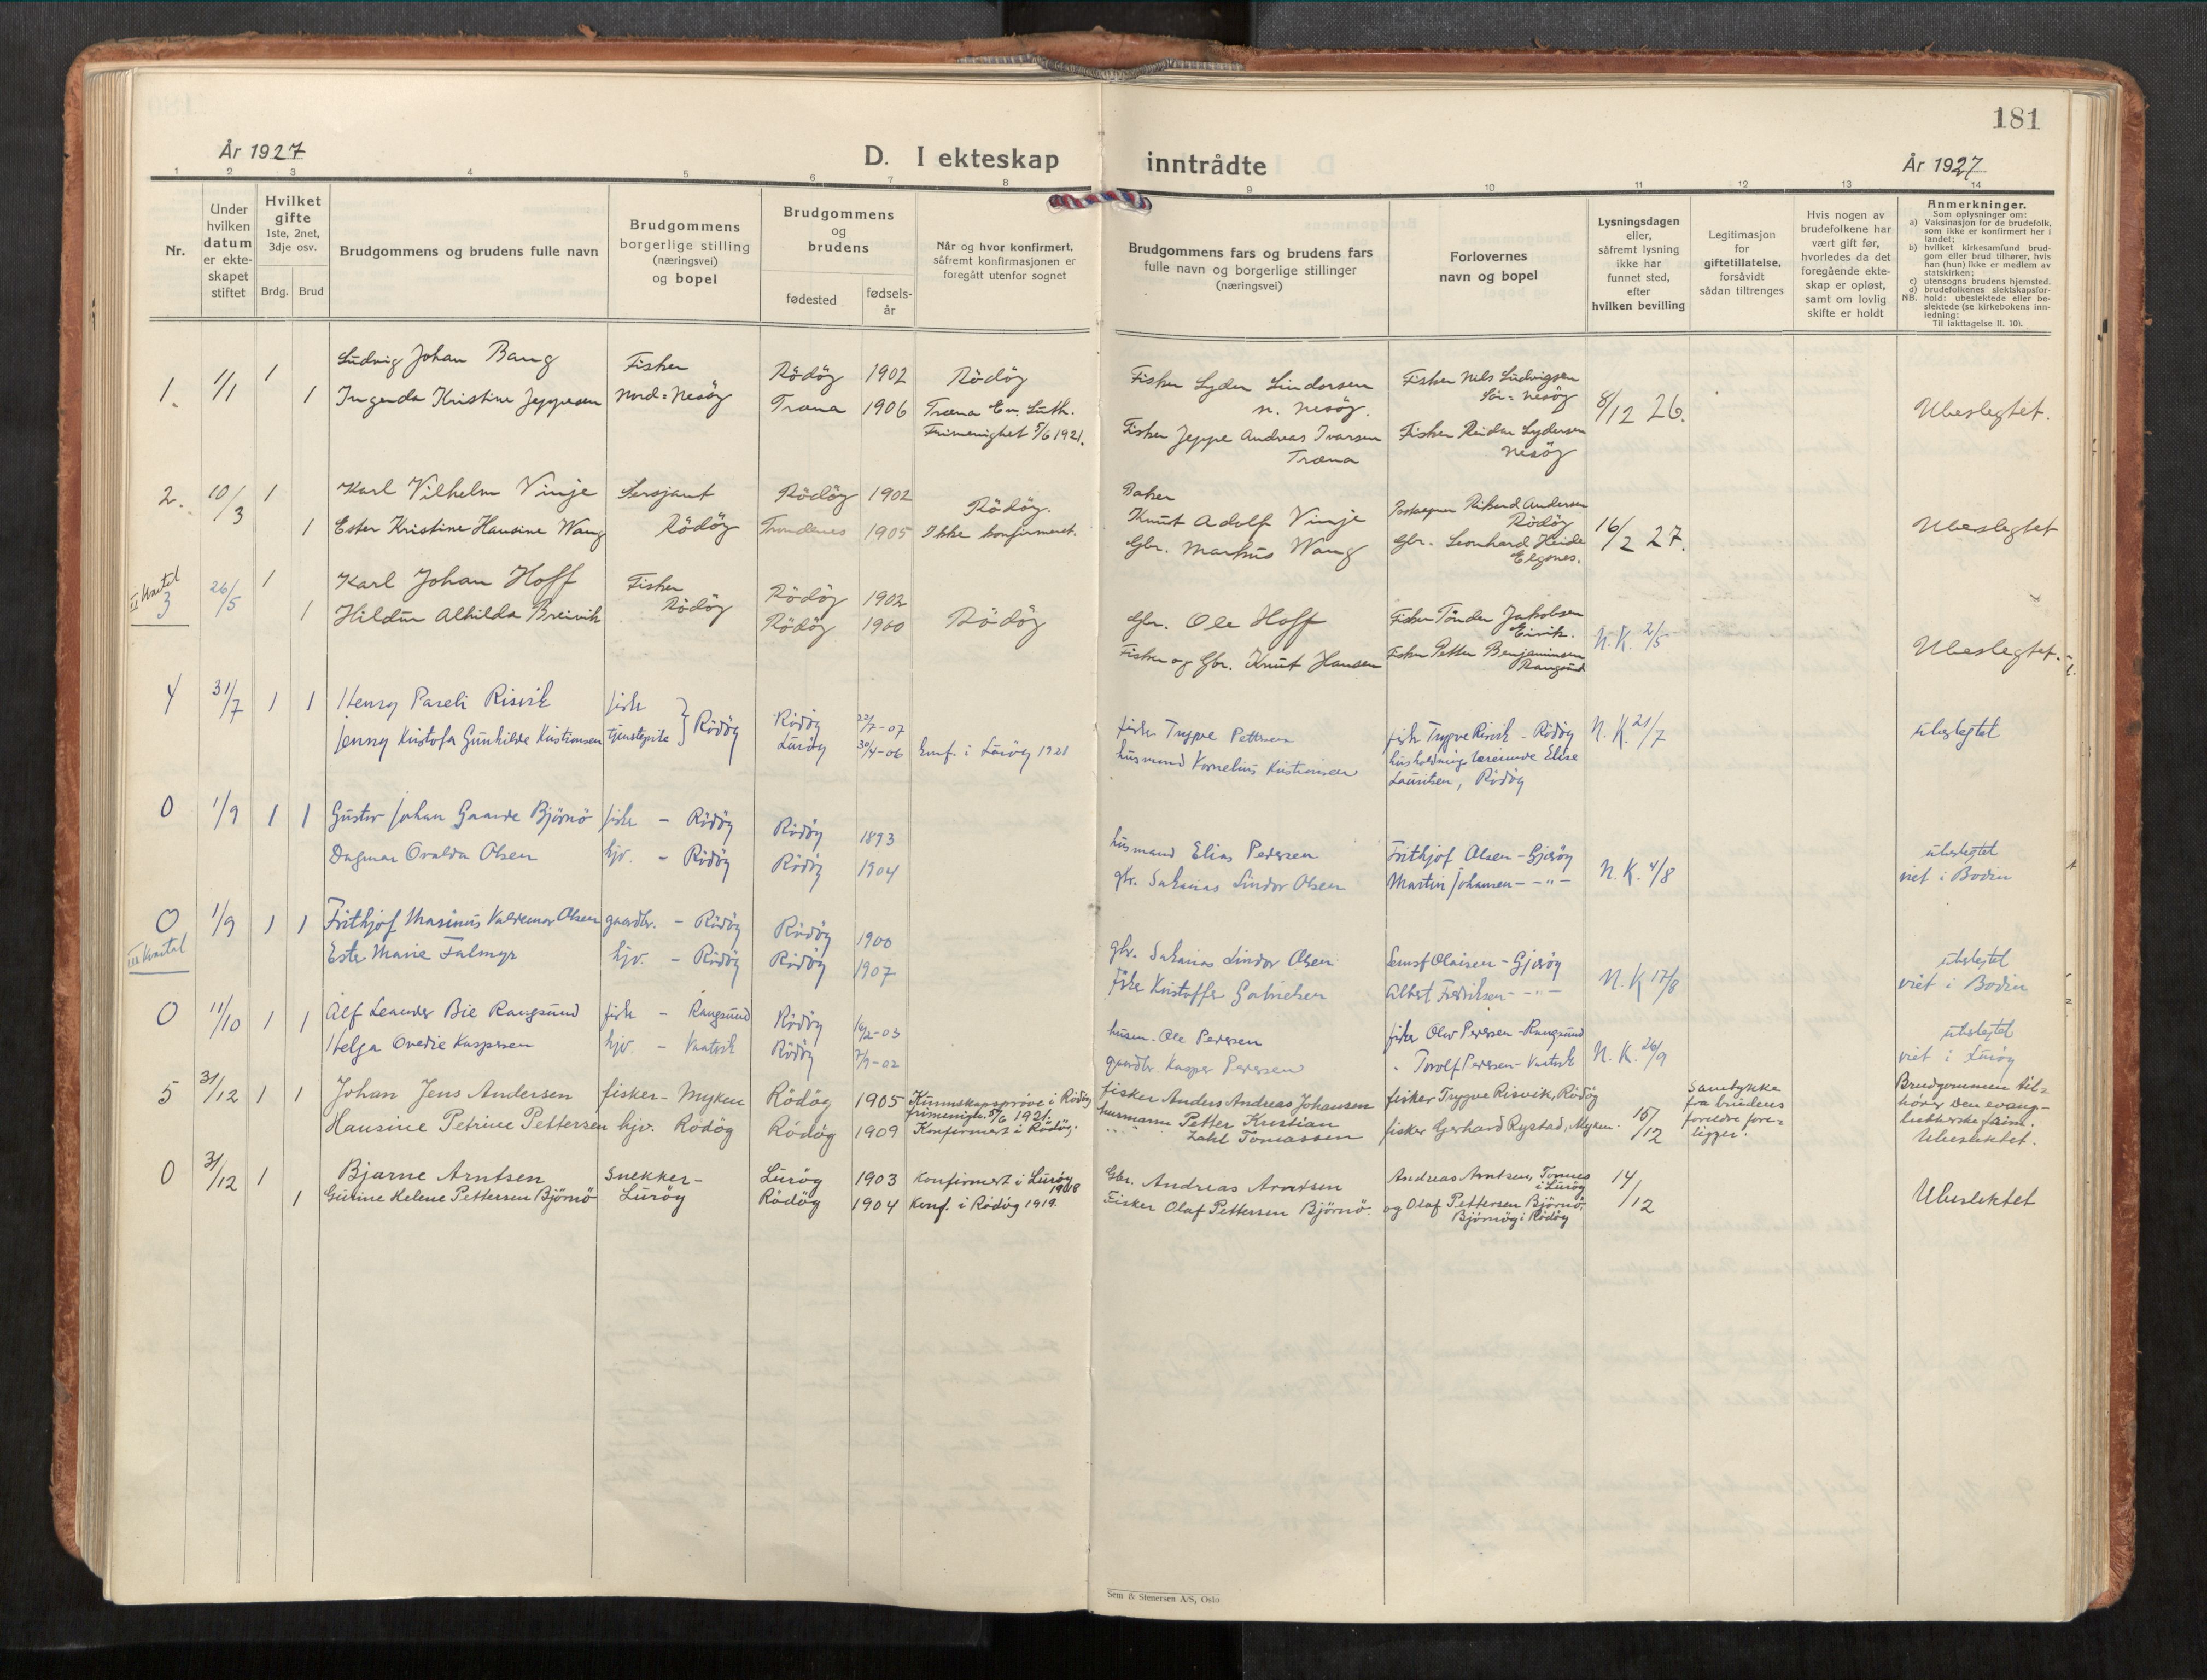 181
År 1927
D. I ekteskap inntrådte
År 1927
1 2 3 4 5 6 7 8 9 10 11 12 13 14
Nr.
Under hvilken datum er ekteskapet stiftet
Hvilket gifte 1ste, 2net, 3dje osv.
Brdg. Brud
Brudgommens og brudens fulle navn
Brudgommens borgerlige stilling (næringsvei) og bopel
Brudgommens og brudens
fødested
fødsels-år
Når og hvor konfirmert, såfremt konfirmasjonen er foregått utenfor sognet
Brudgommens fars og brudens fars fulle navn og borgerlige stillinger (næringsvei)
Forlovernes navn og bopel
Lysningsdagen eller, såfremt lysning ikke har funnet sted, efter hvilken bevilling
Legitimasjon for giftetillatelse, forsåvidt sådan tiltrenges
Hvis nogen av brudefolkene har vært gift før, hvorledes da det foregående ekteskap er opløst, samt om lovlig skifte er holdt
Anmerkninger.
Som oplysninger om:
a) Vaksinasjon for de brudefolk, som ikke er konfirmert her i landet;
b) hvilket kirkesamfund brudgom eller brud tilhører, hvis han (hun) ikke er medlem av statskirken;
c) utensogns brudens hjemsted.
d) brudefolkenes slektskapsfor-
NB. hold: ubeslektede eller beslektede (se kirkebokens innledning:
Til iakttagelse II. 10).
1. 1/1 1 Ludvig Johan Bang Fisker Rödöy 1902 Rödöy Fisker Lyder Lindorsen n. Nesöy. Fisker Nils Ludvigsen Sör=Nesöy 8/12 26. Ubeslegtet.
1 Ingenda Kristine Jeppesen Nord=Nesöy Træna 1906 Træna Ev. Luth. Frimenighet 5/6 1921. Fisker Jeppe Andreas Ivarsen Træna Fisker Reidar Lydersen Nesöy
2. 10/3 1 Karl Vilhelm Vinje Sersjant Rödöy 1902 Rödöy. Baker Knut Adolf Vinje Rikard Andersen Rödöy 16/2 27. Ubeslegtet
1 Ester Kristine Hansine Wang Rödöy Trondenes 1905 Ikke konfirmert. Gbr. Markus Wang Gbr. Leonhard Heide Elgsnes.
II Kvartal
3 26/5 1 Karl Johan Hoff Fisker Rödöy 1902 Rödöy Gbr. Ole Hoff Fisker Tönder Jakobsen N. K. 2/5 Ubeslegtet.
1 Hildur Alhilda Breivik Rödöy Rödöy 1900 Fisker og Gbr. Knut Hansen Fisker Petter Benjaminsen Rangsund
4 31/7 1 1 Henry Pareli Risvik fisker Rödöy Rödöy 22/7-07 fisker Trygve Pettersen fisker Trygve Risvik - Rödöy N. K. 21/7 ubeslegtet
Jenny Kristofa Gunhilde Kristiansen tjenestepike Luröy 30/4-06 konf. i Luröy 1921 husmand Kornelius Kristiansen husholdningslærerinde Elise Lauritsen, Rödöy
0 1/9 1 1 Gustav Johan Gaarde Björnö fisker - Rödöy Rödöy 1893 husmand Elias Pedersen Frithjof Olsen - Gjeröy N. K. 4/8 ubeslegtet
Dagmar Ovalda Olsen hjv. - Rödöy Rödöy 1904 gbr. Sakarias Lindor Olsen Martin Johansen - -"- viet i Bodin
0 1/9 1 1 Frithjof Masinus Valdemar Olsen gaardbr. - Rödöy Rödöy 1900 gbr. Sakarias Lindor Olsen Olaisen - Gjeröy N. K 17/8 ubeslegtet
III Kvartal
Ester Marie Falmyr hjv. - Rödöy Rödöy 1907 Fisker Kristoffer Gabrielsen Albert Fredriksen - -"- viet i Bodin
0 11/10 1 1 Alf Leander Bie Rangsund fisker - Rangsund Rödöy 16/2-03 husm. Ole Pedersen fisker Olav Pedersen - Rangsund N. K. 26/9 ubeslegtet
Helga Ovedie Kaspersen hjv. - Rödöy 7/9-02 gaardbr. Kasper Pedersen " Torolf Pedersen - viet i Luröy
5 31/12 1 1 Johan Jens Andersen fisker - Myken Rödöy 1905 Kunnskapsprøve i Rödöy frimenigh. 5/6 1921. fisker Anders Andreas Johansen fisker Trygve Risvik, Rödöy 15/12 Samtykke fra brudens foreldre foreligger. Brudgommen tilhörer Den evang-lutherske frim. Ubeslektet.
Hansine Petrine Pettersen hjv. Rödöy Rödöy 1909 Konfirmert i Rödöy. husmann Petter Kristian Zahl Tomassen fisker Gerhard Rystad, Myken.
0 31/12 1 Bjarne Arntsen Snekker- Luröy 1903 Konfirmert i Luröy 1918 Gbr. Andreas Arntsen Andreas Arntsen, Tonnes i Luröy 14/12 Ubeslektet
1 Gurine Helene Pettersen Björnö Luröy Rödöy 1904 Konf. i Rödöy 1919. Fisker Olaf Pettersen Björnö. og Olaf Pettersen Björnö, Björnöy i Rödöy
Sem & Stenersen A/S, Oslo